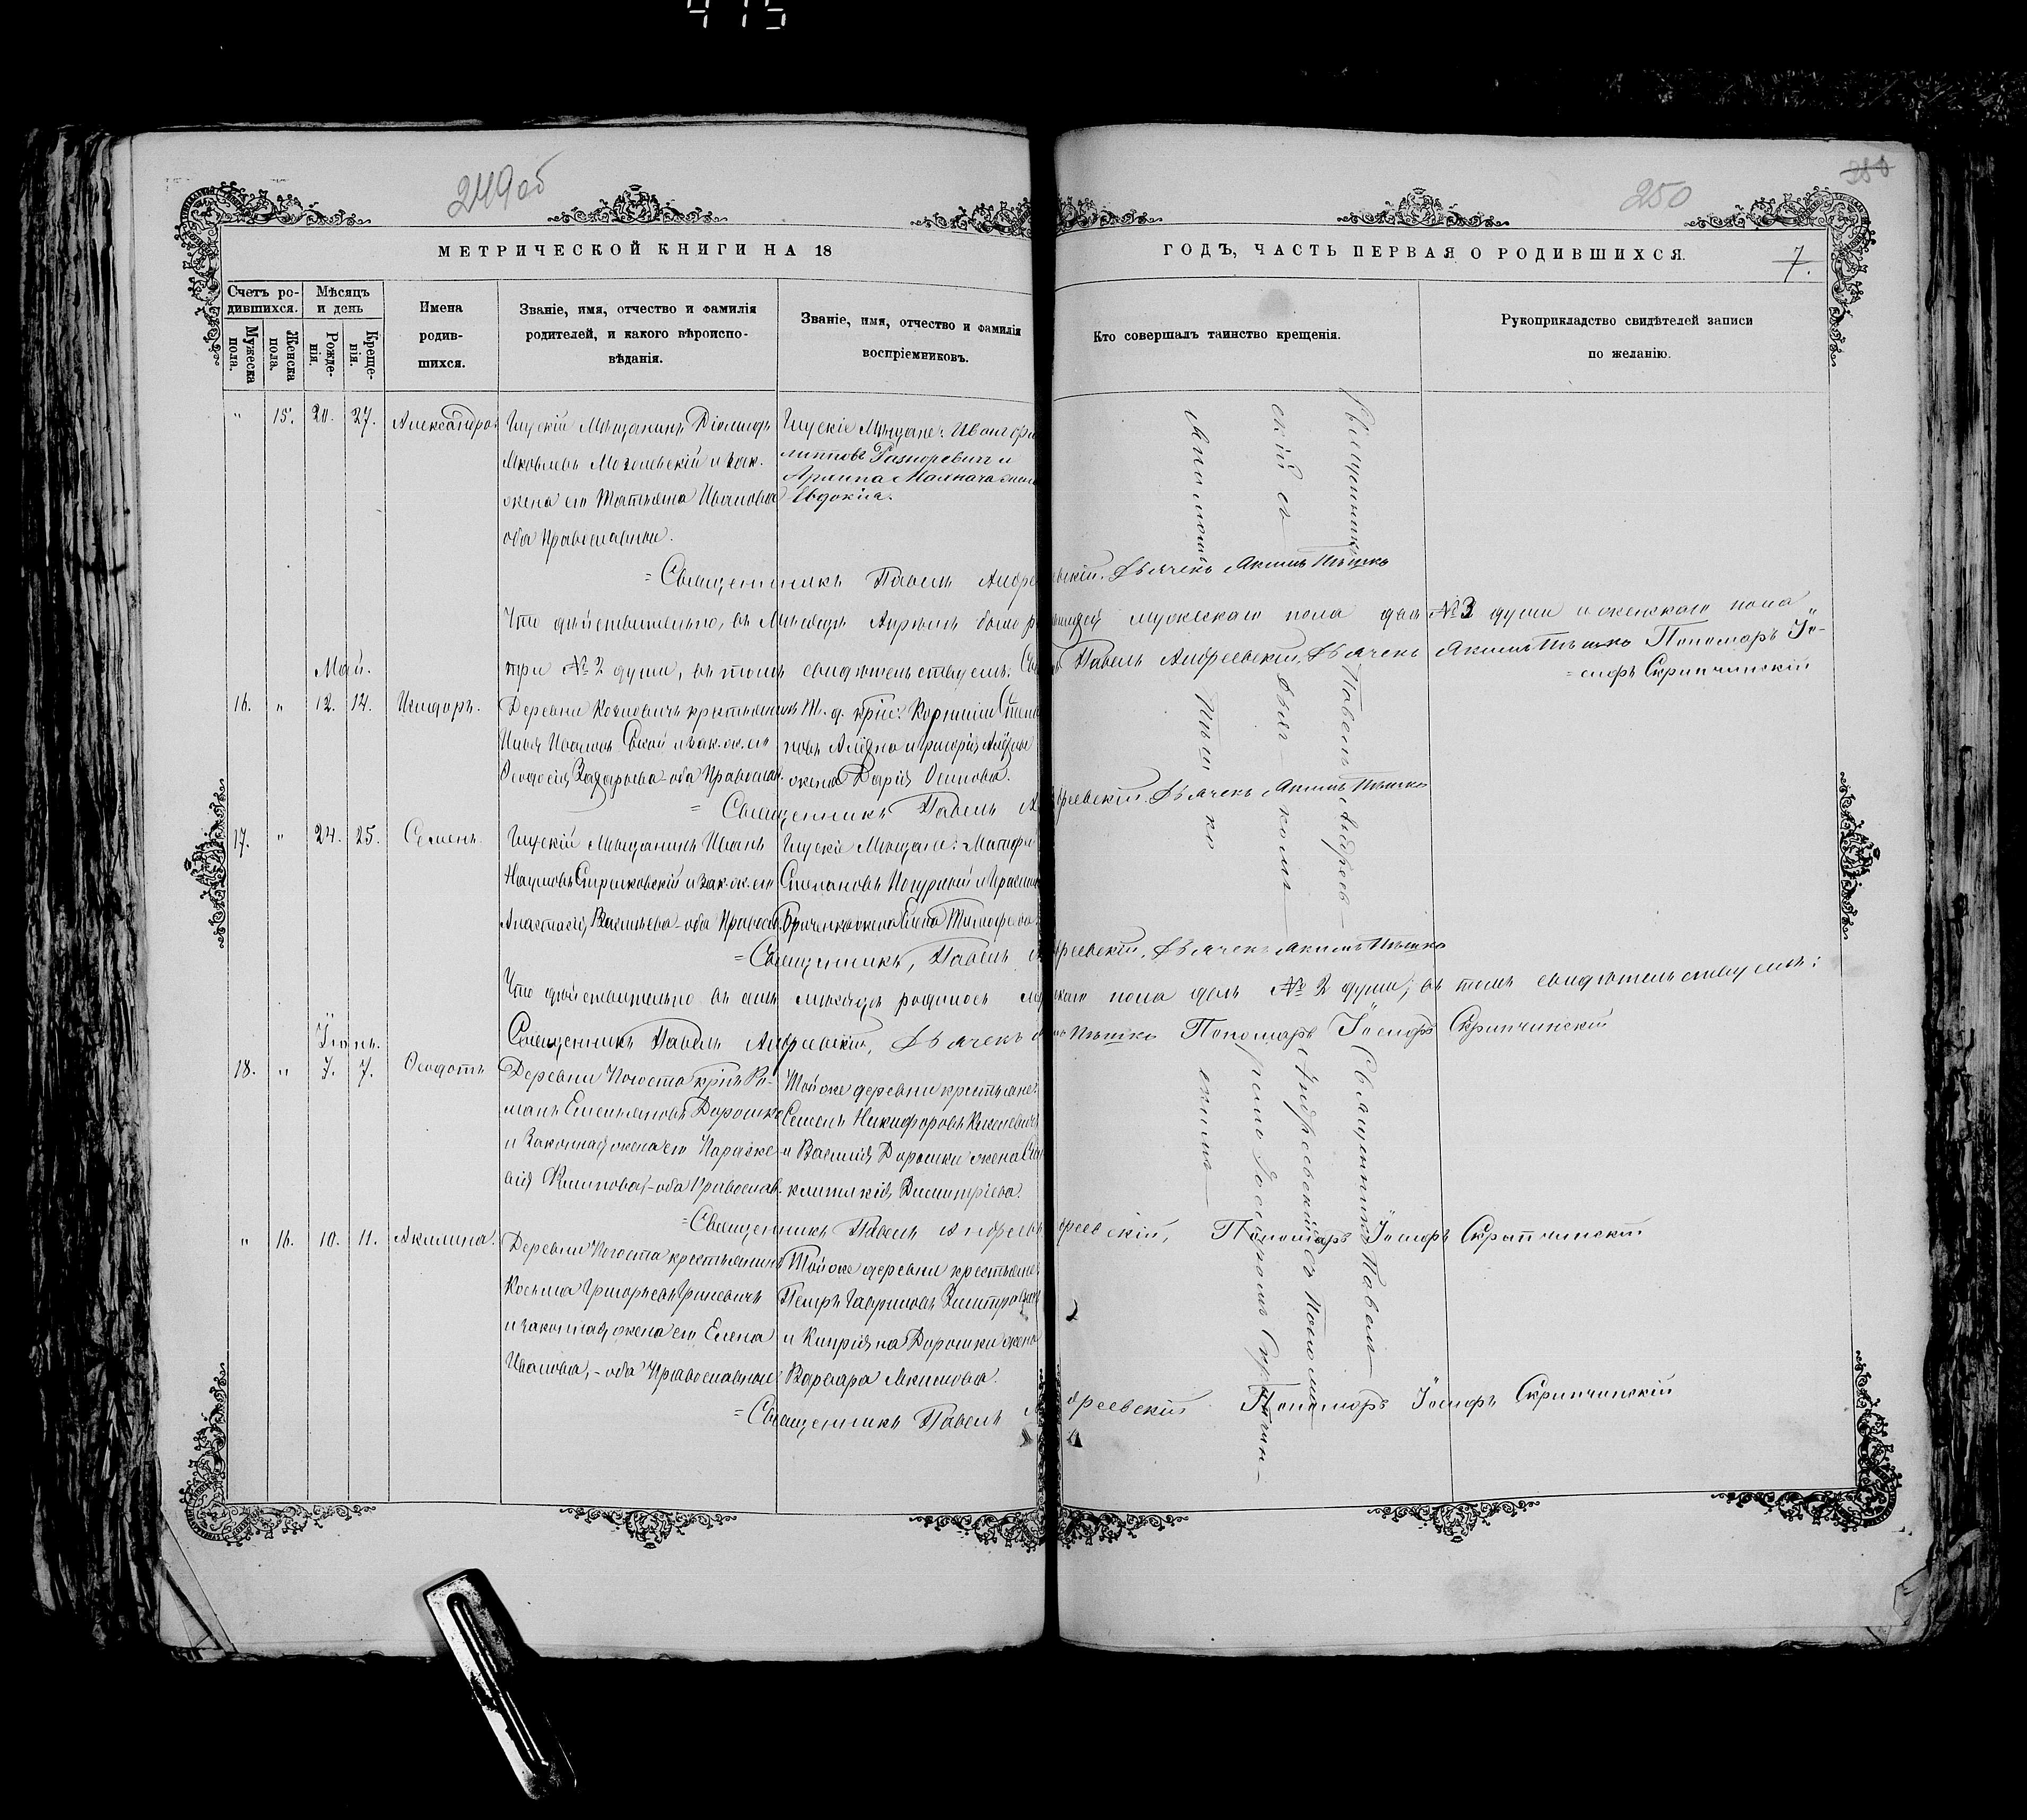 415
249об
250
250
МЕТРИЧЕСКОЙ КНИГИ НА 18
ГОДЪ, ЧАСТЬ ПЕРВАЯ О РОДИВШИХСЯ.
7.
Счетъ ро-
дившихся.
Мужеска
пола.
Женска
пола.
Мѣсяцъ
и день
Рожде-
нія.
Креще-
нія.
Имена
родив-
шихся.
Званіе, имя, отчество и фамилія
родителей, и какого вѣроиспо-
вѣданія.
Званіе, имя, отчество и фамилія
воспріемниковъ.
Кто совершалъ таинство крещенія.
Рукоприкладство свидѣтелей записи
по желанію.
" 15. 20. 27. Александра
Глускій Мѣщанинъ Діомидъ
Яковлевъ Могилевскій и зак.
жена его Татьяна Иванова
оба Православные.
Глускіе Мѣщане: Иванъ
и
Евдокія.
Священникъ
Павелъ Андреев-
скій съ
Дьяч-
комъ
Акимомъ
Пѣшко
= Священникъ Павелъ Андреевскій. Дьячекъ Акимъ Пѣшко
Что дѣйствительно, въ Мѣсяцѣ Апрѣлѣ было мужескаго пола два №3 души и женскаго пола
три №2 души, въ томъ свидѣтельствуемъ: Павелъ Андреевскій, Дьячекъ Акимъ Пѣшко Пономарь Іо-
= сифъ Скрипчинскій
Май.
16. " 12. 14. Исидоръ.
Деревни крестьянинъ
Илья Ивановъ и зак. ж. его
Ѳеодосія Захарьева - оба Православ.
Т. д. Корнилій
и Григорія
жена Дарія Осипова.
= Священникъ Павелъ Андреевскій. Дьячекъ Акимъ Пѣшко
17. " 24. 25. Семенъ.
Глускій Мѣщанинъ Иванъ
Наумовъ и зак. ж. его
Анастасія Васильева - оба Православ.
Глускіе Мѣщане:
Степановъ
жена Елена Тимофеева
= Священникъ, Павелъ Андреевскій, Дьячекъ Акимъ Пѣшко
Что дѣйствительно въ семъ мѣсяцѣ родилось пола два №2 души; въ томъ свидѣтельствуемъ:
Священникъ Павелъ Андреевскій, Дьячекъ Пѣшко Пономарь Іосифъ Скрипчинскій
Іюнь.
18. " 7. 7. Ѳеодотъ
Деревни Погоста Ро-
манъ Емельяновъ Дорошко
и законная жена его Параске-
вія Филипова, - оба Православ.
Той же деревни крестьяне:
Семенъ Никифоровъ
и Василія Дорошки жена
Димитріева.
Священникъ Павелъ
Андреевскій съ Поно-
маремъ Іосифомъ Скрипчин-
скимъ
= Священникъ Павелъ Андреевскій, Пономарь Іосифъ Скрипчинскій
" 16. 10. 11. Акилина.
Деревни Погоста крестьянинъ
Косьма Григорьевъ Гриневичъ
и законная жена его Елена
Иванова, - оба Православные
Той же деревни крестьяне:
Петръ Гавриловъ
и Кипріяна Дорошки жена
Варвара Акимова.
= Священникъ Павелъ Андреевскій Пономарь Іосифъ Скрипчинскій